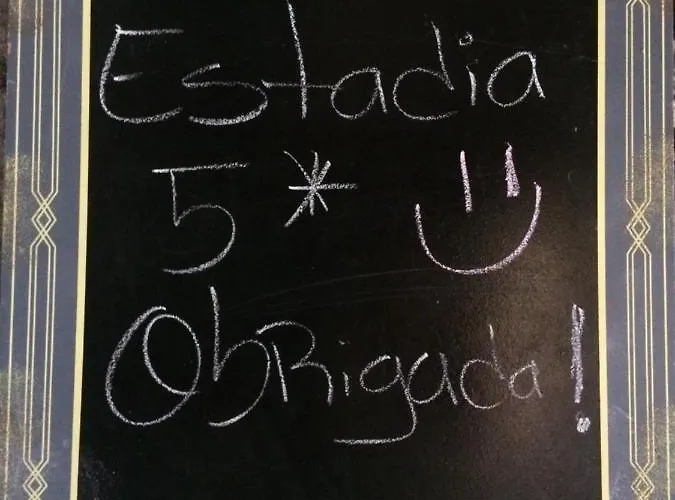 Estadia
5 *
Obrigada!